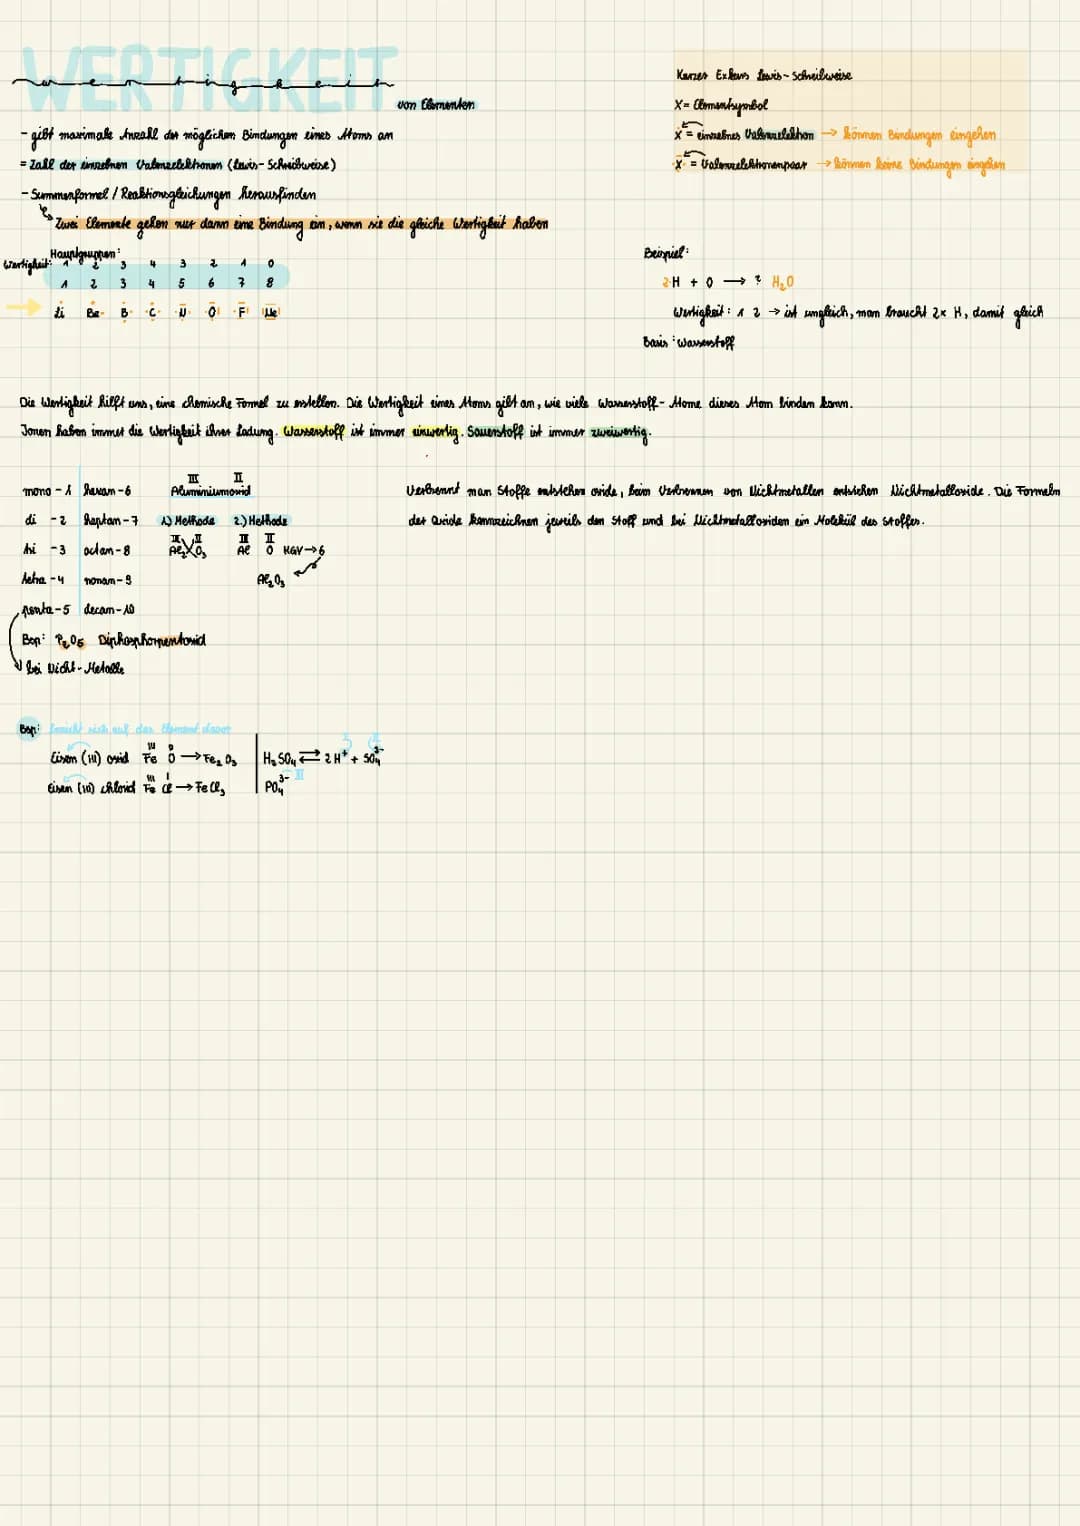 WERTIGKEIT
wertigkeit
von Elementen
- gibt maximale Anzahl der möglichen Bindungen eines Atoms an
= Zahl der einzelnen Valenzelektronen (Lewis-Schreibweise)
- Summenformel / Reaktionsgleichungen herausfinden
Zwei Elemente gehen nur dann eine Bindung ein, wenn sie die gleiche Wertigkeit haben
Kurzer Exkurs Lewis-Schreibweise
X = Elementsymbol
X = einzelnes Valenzelektron → können Bindungen eingehen
X = Valenzelektronenpaar → können keine Bindungen eingehen
Hauptgruppen:
Wertigkeit: 1 2 3 4 3 2 1 0
1 2 3 4 5 6 7 8
Li Be B C N O F Ne
Beispiel:
2·H + O → ? H₂O
Wertigkeit: 1 2 → ist ungleich, man braucht 2x H, damit gleich
Basis: Wasserstoff
Die Wertigkeit hilft uns, eine chemische Formel zu erstellen. Die Wertigkeit eines Atoms gibt an, wie viele Wasserstoff-Atome dieses Atom binden kann.
Ionen haben immer die Wertigkeit ihrer Ladung. Wasserstoff ist immer einwertig. Sauerstoff ist immer zweiwertig.
mono - 1 hexan - 6
di - 2 heptan - 7
tri - 3 octan - 8
tetra - 4 nonan - 9
penta - 5 decan - 10
Bsp: P₂O₅ Diphosphorpentoxid
bei Nicht-Metalle
III II
Aluminiumoxid
1.) Methode 2.) Methode
III II III II
Al₂ O₃ Al O KGV → 6
Al₂O₃
Verbrennt man Stoffe entstehen Oxide, beim Verbrennen von Nichtmetallen entstehen Nichtmetalloxide. Die Formeln
der Oxide kennzeichnen jeweils den Stoff und bei Nichtmetalloxiden ein Molekül des Stoffes.
Bsp: bezieht sich auf das Element davor
III II
Eisen (III) oxid Fe O → Fe₂O₃
III I
Eisen (III) chlorid Fe Cl → FeCl₃
H₂SO₄ ⇄ 2H⁺ + SO₄²⁻
PO₄³⁻ - III